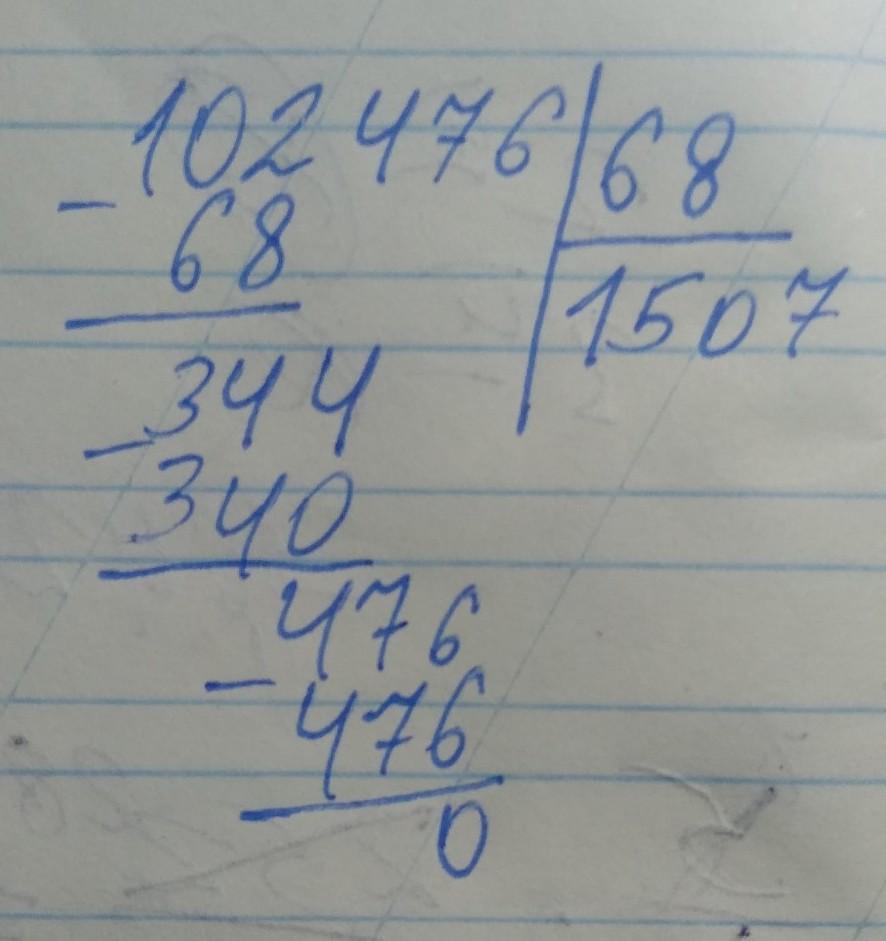 102 476 68
- 68 1507
344
- 340
476
- 476
0